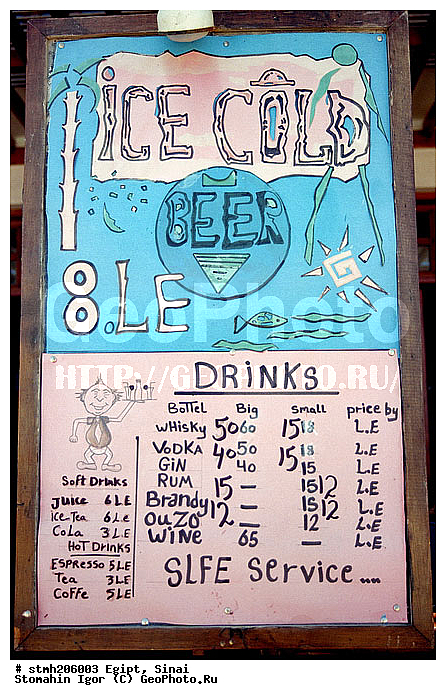 ICE COLD
BEER
8.LE
GeoPhoto
HTTP://GEOPHOTO.RU/
DRINKS
BoTTEL Big small price by
wHisKy 50 60 15 18 L.E
VODKA 40 50 15 18 L.E
GiN 40 15 L.E
RUM 15 — 15 12 L.E
Brandy 12 — 15 12 L.E
OUZO 12 L.E
WiNE 65 — L.E
SLFE Service ...
Soft Drinks
Juice 6 LE
ICE-Tea 6 Le
CoLa 3 LE
HoT Drinks
ESPresso 5 LE
Tea 3 LE
CoffE 5 LE
# stmh206003 Egipt, Sinai
Stomahin Igor (C) GeoPhoto.Ru